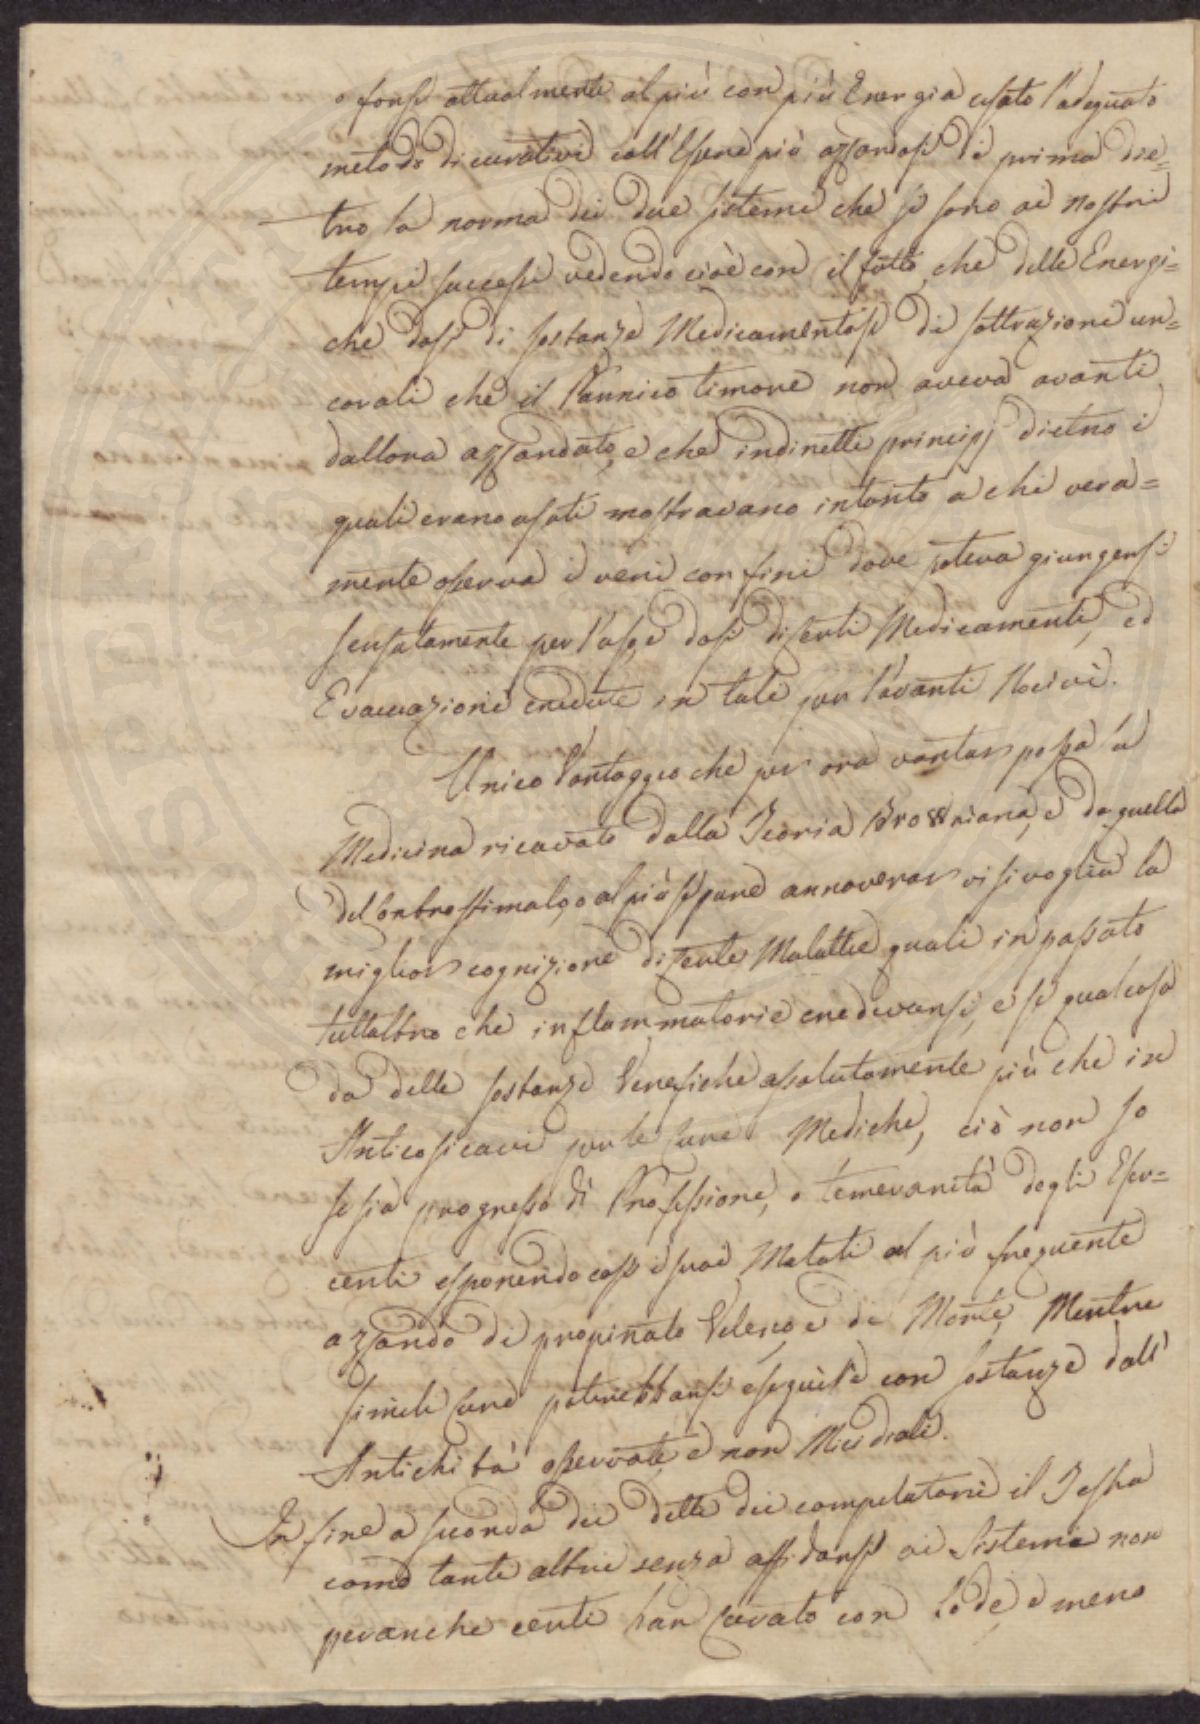 o forsi attualmente al più con più Energia usato l'adeguato
metodo di curativi coll'Essere più azzardosi di prima die=
tro la norma dei due sistemi che si sono ai nostri
tempi successi vedendo cioè con il fatto, che delle Energi=
che dosi di sostanze Medicamentosi di sottrazione un=
corali che il Pannico timore non aveva avanti
dallora azzardato, e che indiretti principj dietro i
quali erano usati mostravano intanto a chi vera=
mente osserva i veri confini dove poteva giungersi
sensatamente per l'uso, e dosi di certi Medicamenti, ed
Evacuazioni credute in tali per l'avanti Nocivi.
Unico Vantaggio che per ora vantar possa la
Medicina ricavato dalla Teoria Browniana, e da quella
del Controstimolo, al più si pure annoverar vi si voglia la
miglior cognizione di certe Malattie quali in passato
tuttaltro che inflammatorie credevansi, e si qualcosa
da delle sostanze Venefiche assolutamente più che in
Antico sicavi per le cure Mediche, ciò non so
se sia progresso di Professione, o temerarietà degli Eser=
centi esponendo così i suoi Malati al più frequente
azzardo di propinato Veleno, e di Morte, Mentre
simili cure potrebbansi eseguirle con sostanze dall'
Antichità osservate, e non Micidiali.
In fine a seconda dei detti dei compilatori il Testa
come tanti altri senza affidarsi ai Sistemi non
peranche certi han curato con Lode, e meno